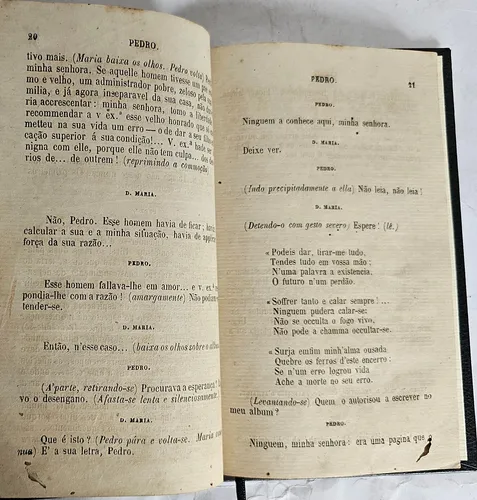 20
PEDRO.
tivo mais. (Maria baixa os olhos. Pedro volta)
minha senhora. Se aquelle homem tivesse um
mo e velho, um administrador pobre, zeloso pela sua
milia, e já agora inseparavel da sua casa, não
ria accrescentar: minha senhora, tomo a liberdade
recommendar a v ex.ª esse velho honrado que
metteu na sua vida um erro—o de dar a seu filho
cação superior á sua condição!... V. ex.ª hade ser
nigna com elle, porque elle não tem culpa... dos
rios de... de outrem! (reprimindo a commoção)
D. MARIA.
Não, Pedro. Esse homem havia de ficar; havia
calcular a sua e a minha situação, havia de
força da sua razão...
PEDRO.
Esse homem fallava-lhe em amor... e v. ex.ª
pondia-lhe com a razão! (amargamente) Não podiam
tender-se.
D. MARIA.
Então, n'esse caso... (baixa os olhos sobre o album
PEDRO.
(A'parte, retirando-se) Procurava a esperança!
vo o desengano. (Afasta-se lenta e silenciosamente.
D. MARIA.
Que é isto? (Pedro pára e volta-se. Maria
nua) E' a sua letra, Pedro.
PEDRO.
21
PEDRO.
Ninguem a conhece aqui, minha senhora.
D. MARIA.
Deixe ver.
PEDRO.
(Indo precipitadamente a ella) Não leia, não leia!
D. MARIA.
(Detendo-o com gesto severo) Espere! (lê.)
«Podeis dar, tirar-me tudo,
Tendes tudo em vossa mão;
N'uma palavra a existencia,
O futuro n'um perdão.
«Soffrer tanto e calar sempre!...
Ninguem pudera calar-se:
Não se occulta o fogo vivo,
Não pode a chamma occultar-se.
«Surja emfim minh'alma ousada
Quebre os ferros d'este encerro:
Se n'um erro logrou vida
Ache a morte no seu erro.
(Levantando-se) Quem o autorisou a escrever no
meu album?
PEDRO.
Ninguem, minha senhora: era uma pagina que